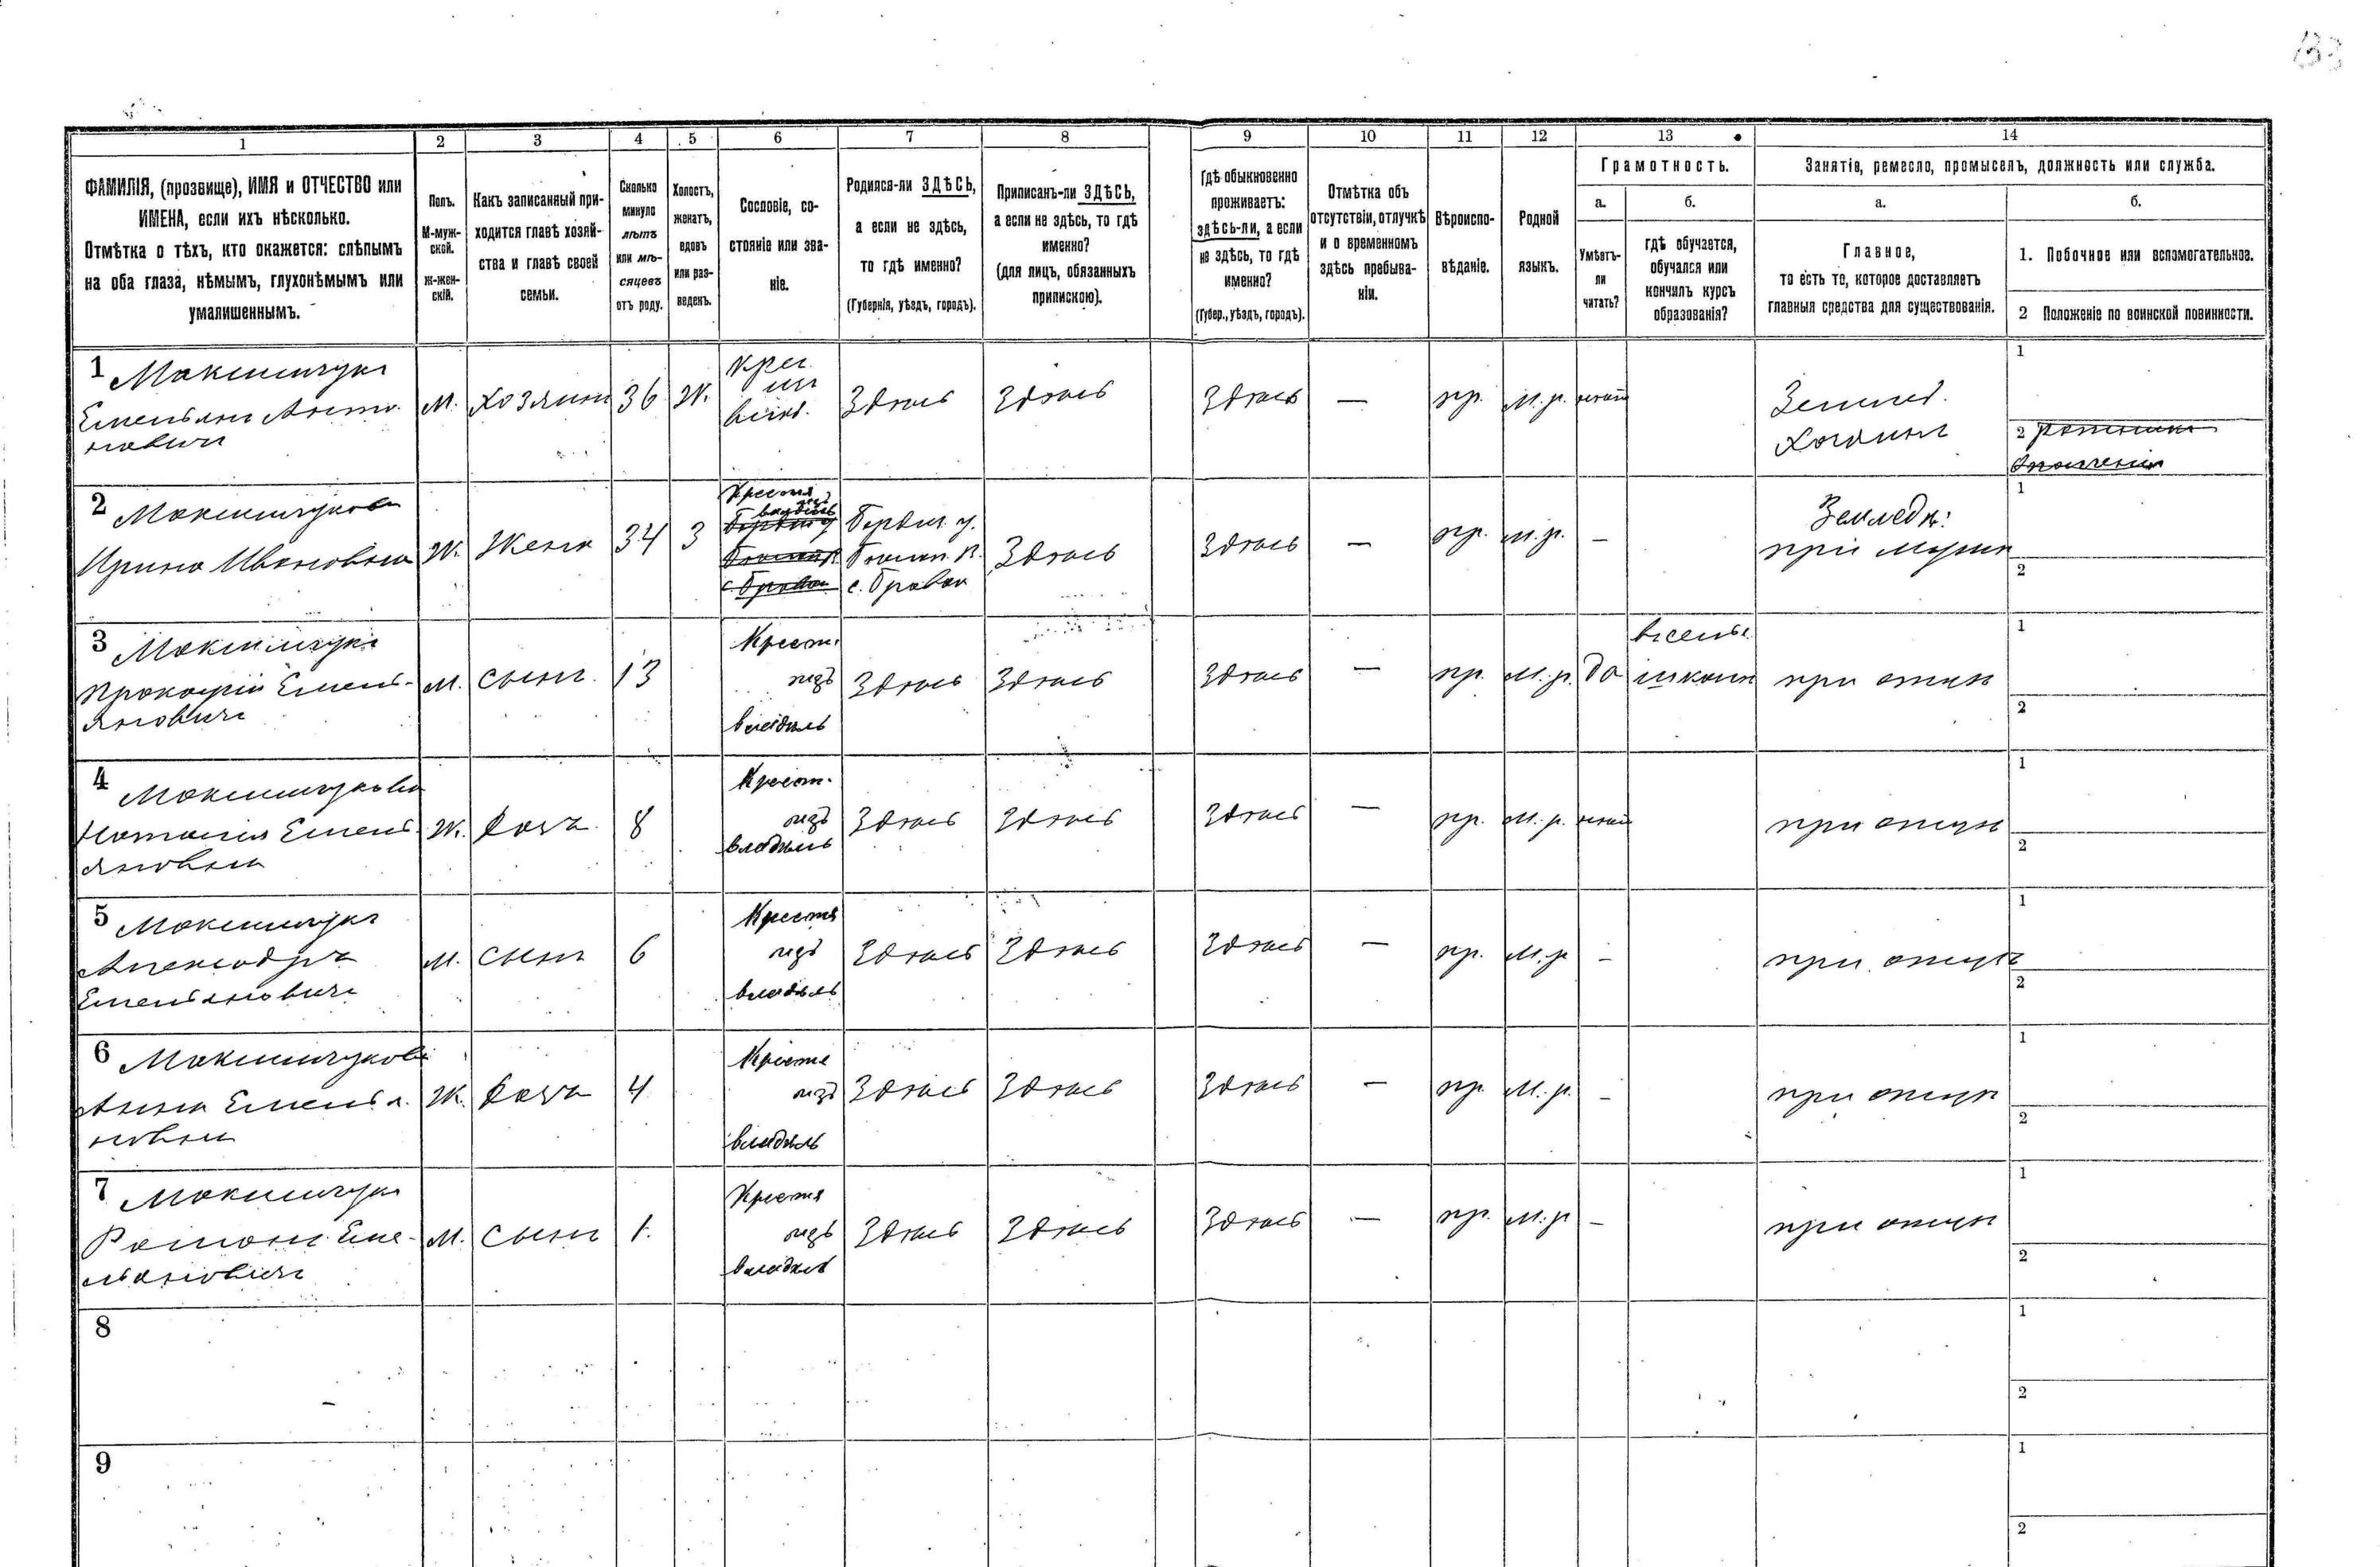 1 2 3 4 5 6 7 8 9 10 11 12 13 14
ФАМИЛІЯ, (прозвище), ИМЯ и ОТЧЕСТВО или
ИМЕНА, если ихъ нѣсколько.
Отмѣтка о тѣхъ, кто окажется: слѣпымъ
на оба глаза, нѣмымъ, глухонѣмымъ или
умалишеннымъ.
Полъ.
М-муж-
ской.
ж-жен-
скій.
Какъ записанный при-
ходится главѣ хозяй-
ства и главѣ своей
семьи.
Сколько
минуло
лѣтъ
или мѣ-
сяцевъ
отъ роду.
Холостъ,
женатъ,
вдовъ
или раз-
веденъ.
Сословіе, со-
стояніе или зва-
ніе.
Родился-ли ЗДѢСЬ,
а если не здѣсь,
то гдѣ именно?
(Губернія, уѣздъ, городъ).
Приписанъ-ли ЗДѢСЬ,
а если не здѣсь, то гдѣ
именно?
(для лицъ, обязанныхъ
припискою).
Гдѣ обыкновенно
проживаетъ:
здѣсь-ли, а если
не здѣсь, то гдѣ
именно?
(Губер., уѣздъ, городъ).
Отмѣтка объ
отсутствіи, отлучкѣ
и о временномъ
здѣсь пребыва-
ніи.
Вѣроиспо-
вѣданіе.
Родной
языкъ.
Грамотность.
а.
Умѣетъ-
ли
читать?
б.
гдѣ обучается,
обучался или
кончилъ курсъ
образованія?
Занятіе, ремесло, промыселъ, должность или служба.
а.
Главное,
то есть то, которое доставляетъ
главныя средства для существованія.
б.
1. Побочное или вспомогательное.
2 Положеніе по воинской повинности.
1 Максимчукъ
Емельянъ Анто-
новичъ
М.
хозяинъ
36
Ж.
Крес
изъ
влад.
Здѣсь
Здѣсь
Здѣсь
—
пр.
м. р.
нѣтъ
Землед.
Хозяинъ
1
2 ратникъ
ополченія
2 Максимчукова
Ирина Ивановна
Ж.
Жена
34
З
Крестья
изъ
владѣль
Бердич у.
с. Бровки
Бердич. у.
с. Бровки
Здѣсь
Здѣсь
—
пр.
м. р.
—
Земледѣ:
при мужѣ
1
2
3 Максимчукъ
Прокофій Емель-
яновичъ
М.
сынъ.
13
Крест.
изъ
владѣль
Здѣсь
Здѣсь
Здѣсь
—
пр.
м. р.
да
въ сельс.
школѣ
при отцѣ
1
2
4 Максимчукова
Наталія Емель-
яновна
Ж.
дочь
8
Крест.
изъ
владѣль
Здѣсь
Здѣсь
Здѣсь
—
пр.
м. р.
нѣтъ
при отцѣ
1
2
5 Максимчукъ
Александръ
Емельяновичъ
М.
сынъ
6
Крестья
изъ
владѣль
Здѣсь
Здѣсь
Здѣсь
—
пр.
м. р
—
при отцѣ
1
2
6 Максимчукова
Анна Емелья-
новна
Ж.
дочь
4
Крестья
изъ
владѣль
Здѣсь
Здѣсь
Здѣсь
—
пр.
м. р.
—
при отцѣ
1
2
7 Максимчукъ
Романъ Еме-
льяновичъ
М.
сынъ
1.
Крестья
изъ
владѣль
Здѣсь
Здѣсь
Здѣсь
—
пр.
м. р
—
при отцѣ
1
2
8
1
2
9
1
2